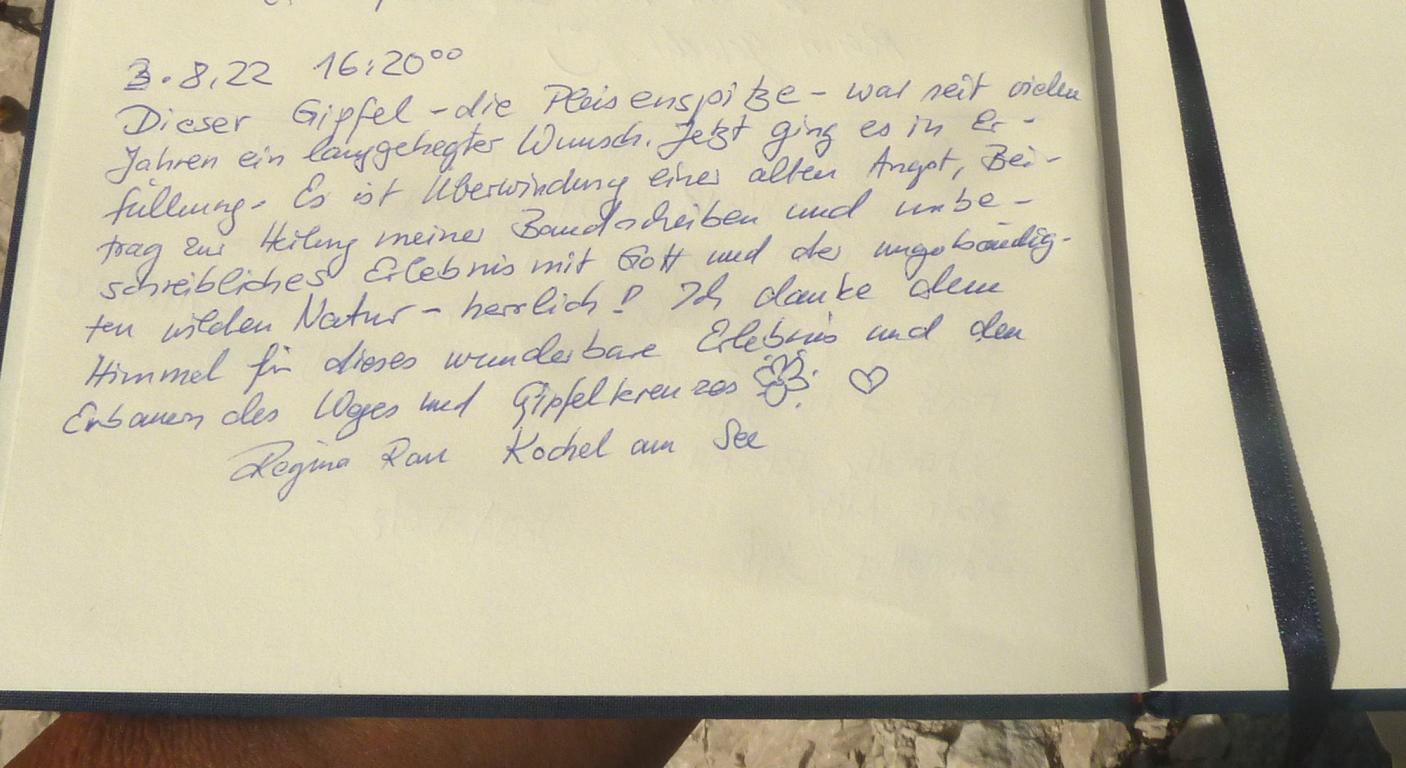 3.8.22 16:20°°
Dieser Gipfel - die Pleisenspitze - war seit vielen
Jahren ein langgehegter Wunsch. Jetzt ging es in Er-
füllung. Es ist Überwindung einer alten Angst, Bei-
trag zur Heilung meiner Bandscheiben und unbe-
schreibliches Erlebnis mit Gott und der ungebändig-
ten wilden Natur - herrlich! Ich danke dem
Himmel für dieses wunderbare Erlebnis und den
Erbauern des Weges und Gipfelkreuzes ♡
Regina Rau Kochel am See